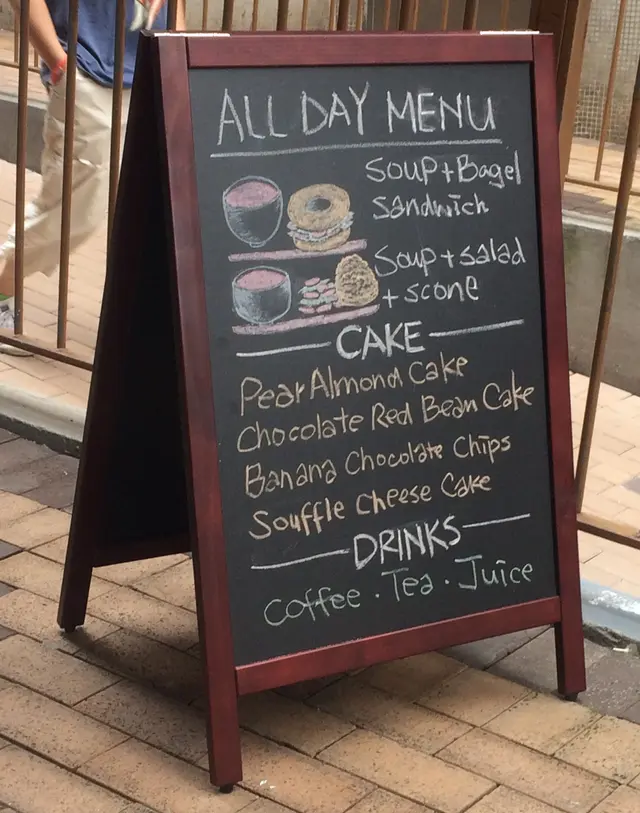 ALL DAY MENU
Soup + Bagel
Sandwich
Soup + salad
+ scone
CAKE
Pear Almond Cake
Chocolate Red Bean Cake
Banana Chocolate Chips
Souffle Cheese Cake
DRINKS
Coffee · Tea · Juice